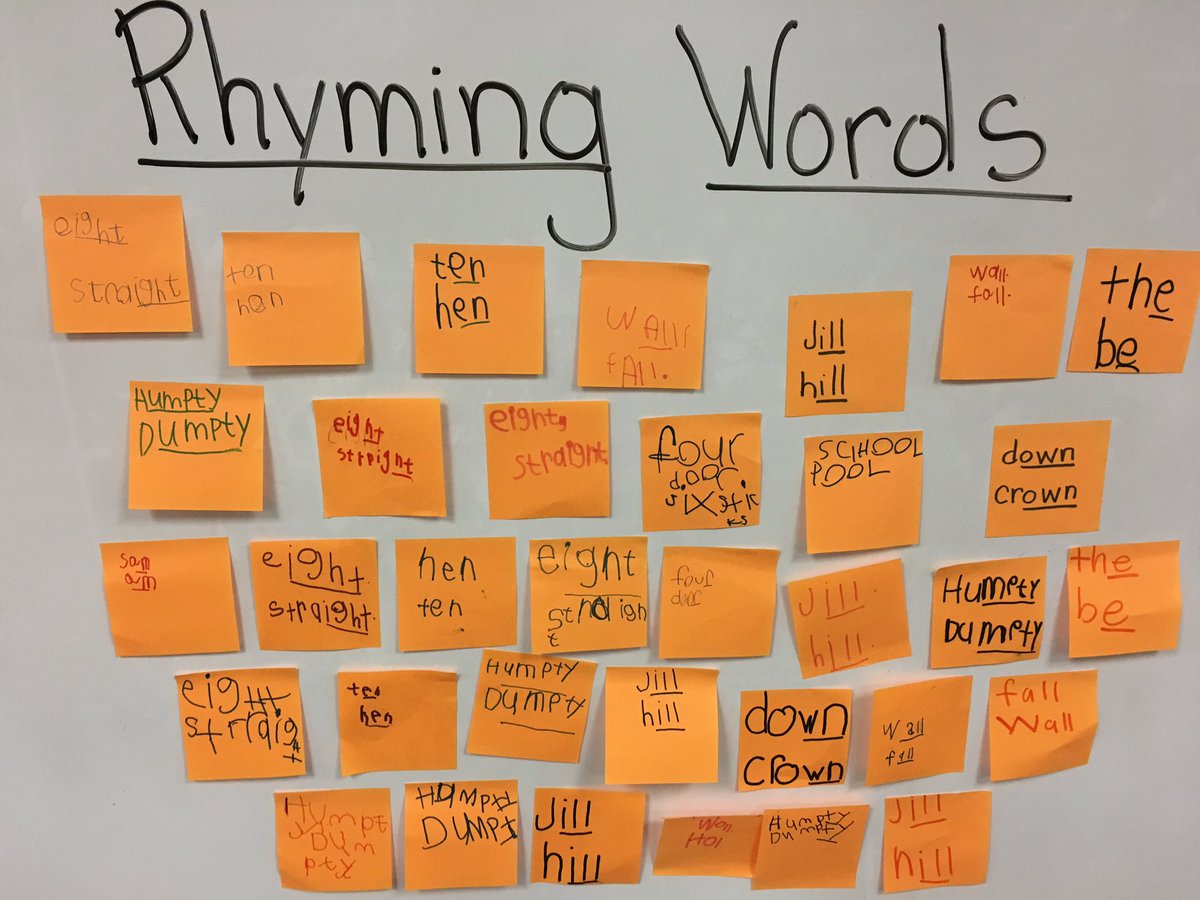 Rhyming Words
eight
straight
ten
hen
ten
hen
WAll
fAll.
Jill
hill
wall.
fall.
the
be
HUMPTY
DUMPTY
eight
streight
eight,
straight.
four
door.
SCHOOL
POOL
down
crown
sam
am
eight.
straight.
hen
ten
eight
four
door
Jill.
hill.
HUMPTY
DUMPTY
the
be
eight
ten
hen
HUMPTY
DUMPTY
Jill
hill
down
crown
wall
fall
fall
wall
HUMPT
DUM
pty
HUMPTY
DUMPT
Jill
hill
HUMPTY
DUMPTY
Jill
hill